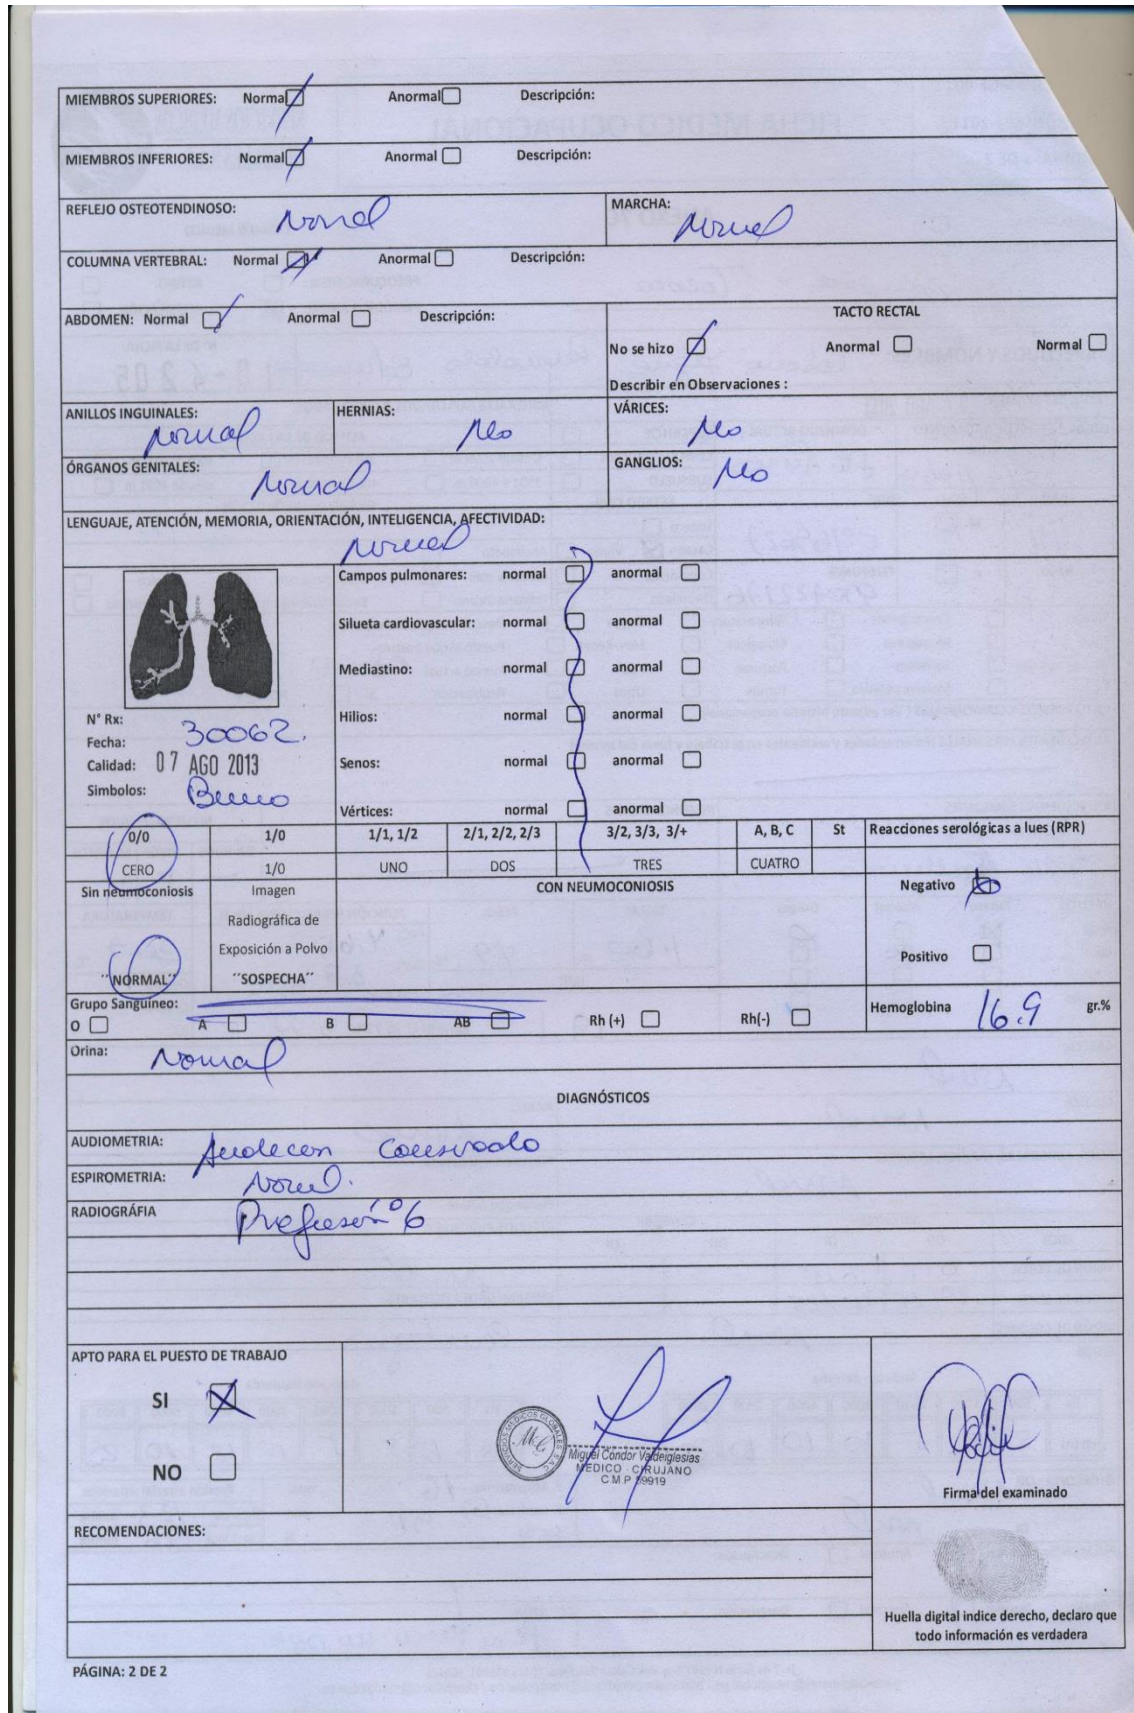 MIEMBROS SUPERIORES: Normal Anormal Descripción:
MIEMBROS INFERIORES: Normal Anormal Descripción:
REFLEJO OSTEOTENDINOSO: Normal MARCHA: Normal
COLUMNA VERTEBRAL: Normal Anormal Descripción:
ABDOMEN: Normal Anormal Descripción: TACTO RECTAL
No se hizo Anormal Normal
Describir en Observaciones :
ANILLOS INGUINALES: Normal HERNIAS: No VÁRICES: No
ÓRGANOS GENITALES: Normal GANGLIOS: No
LENGUAJE, ATENCIÓN, MEMORIA, ORIENTACIÓN, INTELIGENCIA, AFECTIVIDAD:
Normal
Campos pulmonares: normal anormal
Silueta cardiovascular: normal anormal
Mediastino: normal anormal
Hilios: normal anormal
Senos: normal anormal
Vértices: normal anormal
N° Rx: 30062.
Fecha: 07 AGO 2013
Calidad: Bueno
Simbolos:
0/0 1/0 1/1, 1/2 2/1, 2/2, 2/3 3/2, 3/3, 3/+ A, B, C St Reacciones serológicas a lues (RPR)
CERO 1/0 UNO DOS TRES CUATRO
Sin neumoconiosis Imagen CON NEUMOCONIOSIS Negativo
Radiográfica de
Exposición a Polvo Positivo
"NORMAL" "SOSPECHA"
Grupo Sanguineo:
O A B AB Rh (+) Rh(-) Hemoglobina 16.9 gr.%
Orina: Normal
DIAGNÓSTICOS
AUDIOMETRIA:
ESPIROMETRIA: Normal.
RADIOGRÁFIA
APTO PARA EL PUESTO DE TRABAJO
SI
NO
SERVICIOS MEDICOS GLOBALES S.A.C
Miguel Condor Valdeiglesias
MEDICO - CIRUJANO
C.M.P 59919
Firma del examinado
RECOMENDACIONES:
Huella digital indice derecho, declaro que
todo información es verdadera
PÁGINA: 2 DE 2